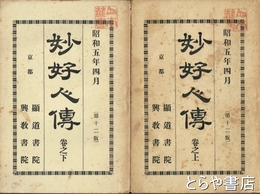 昭和五年四月
妙好人傳
卷之上
(第十二版)
京都
顯道書院
興教書院
昭和五年四月
妙好人傳
卷之下
(第十二版)
京都
顯道書院
興教書院
とらや書店